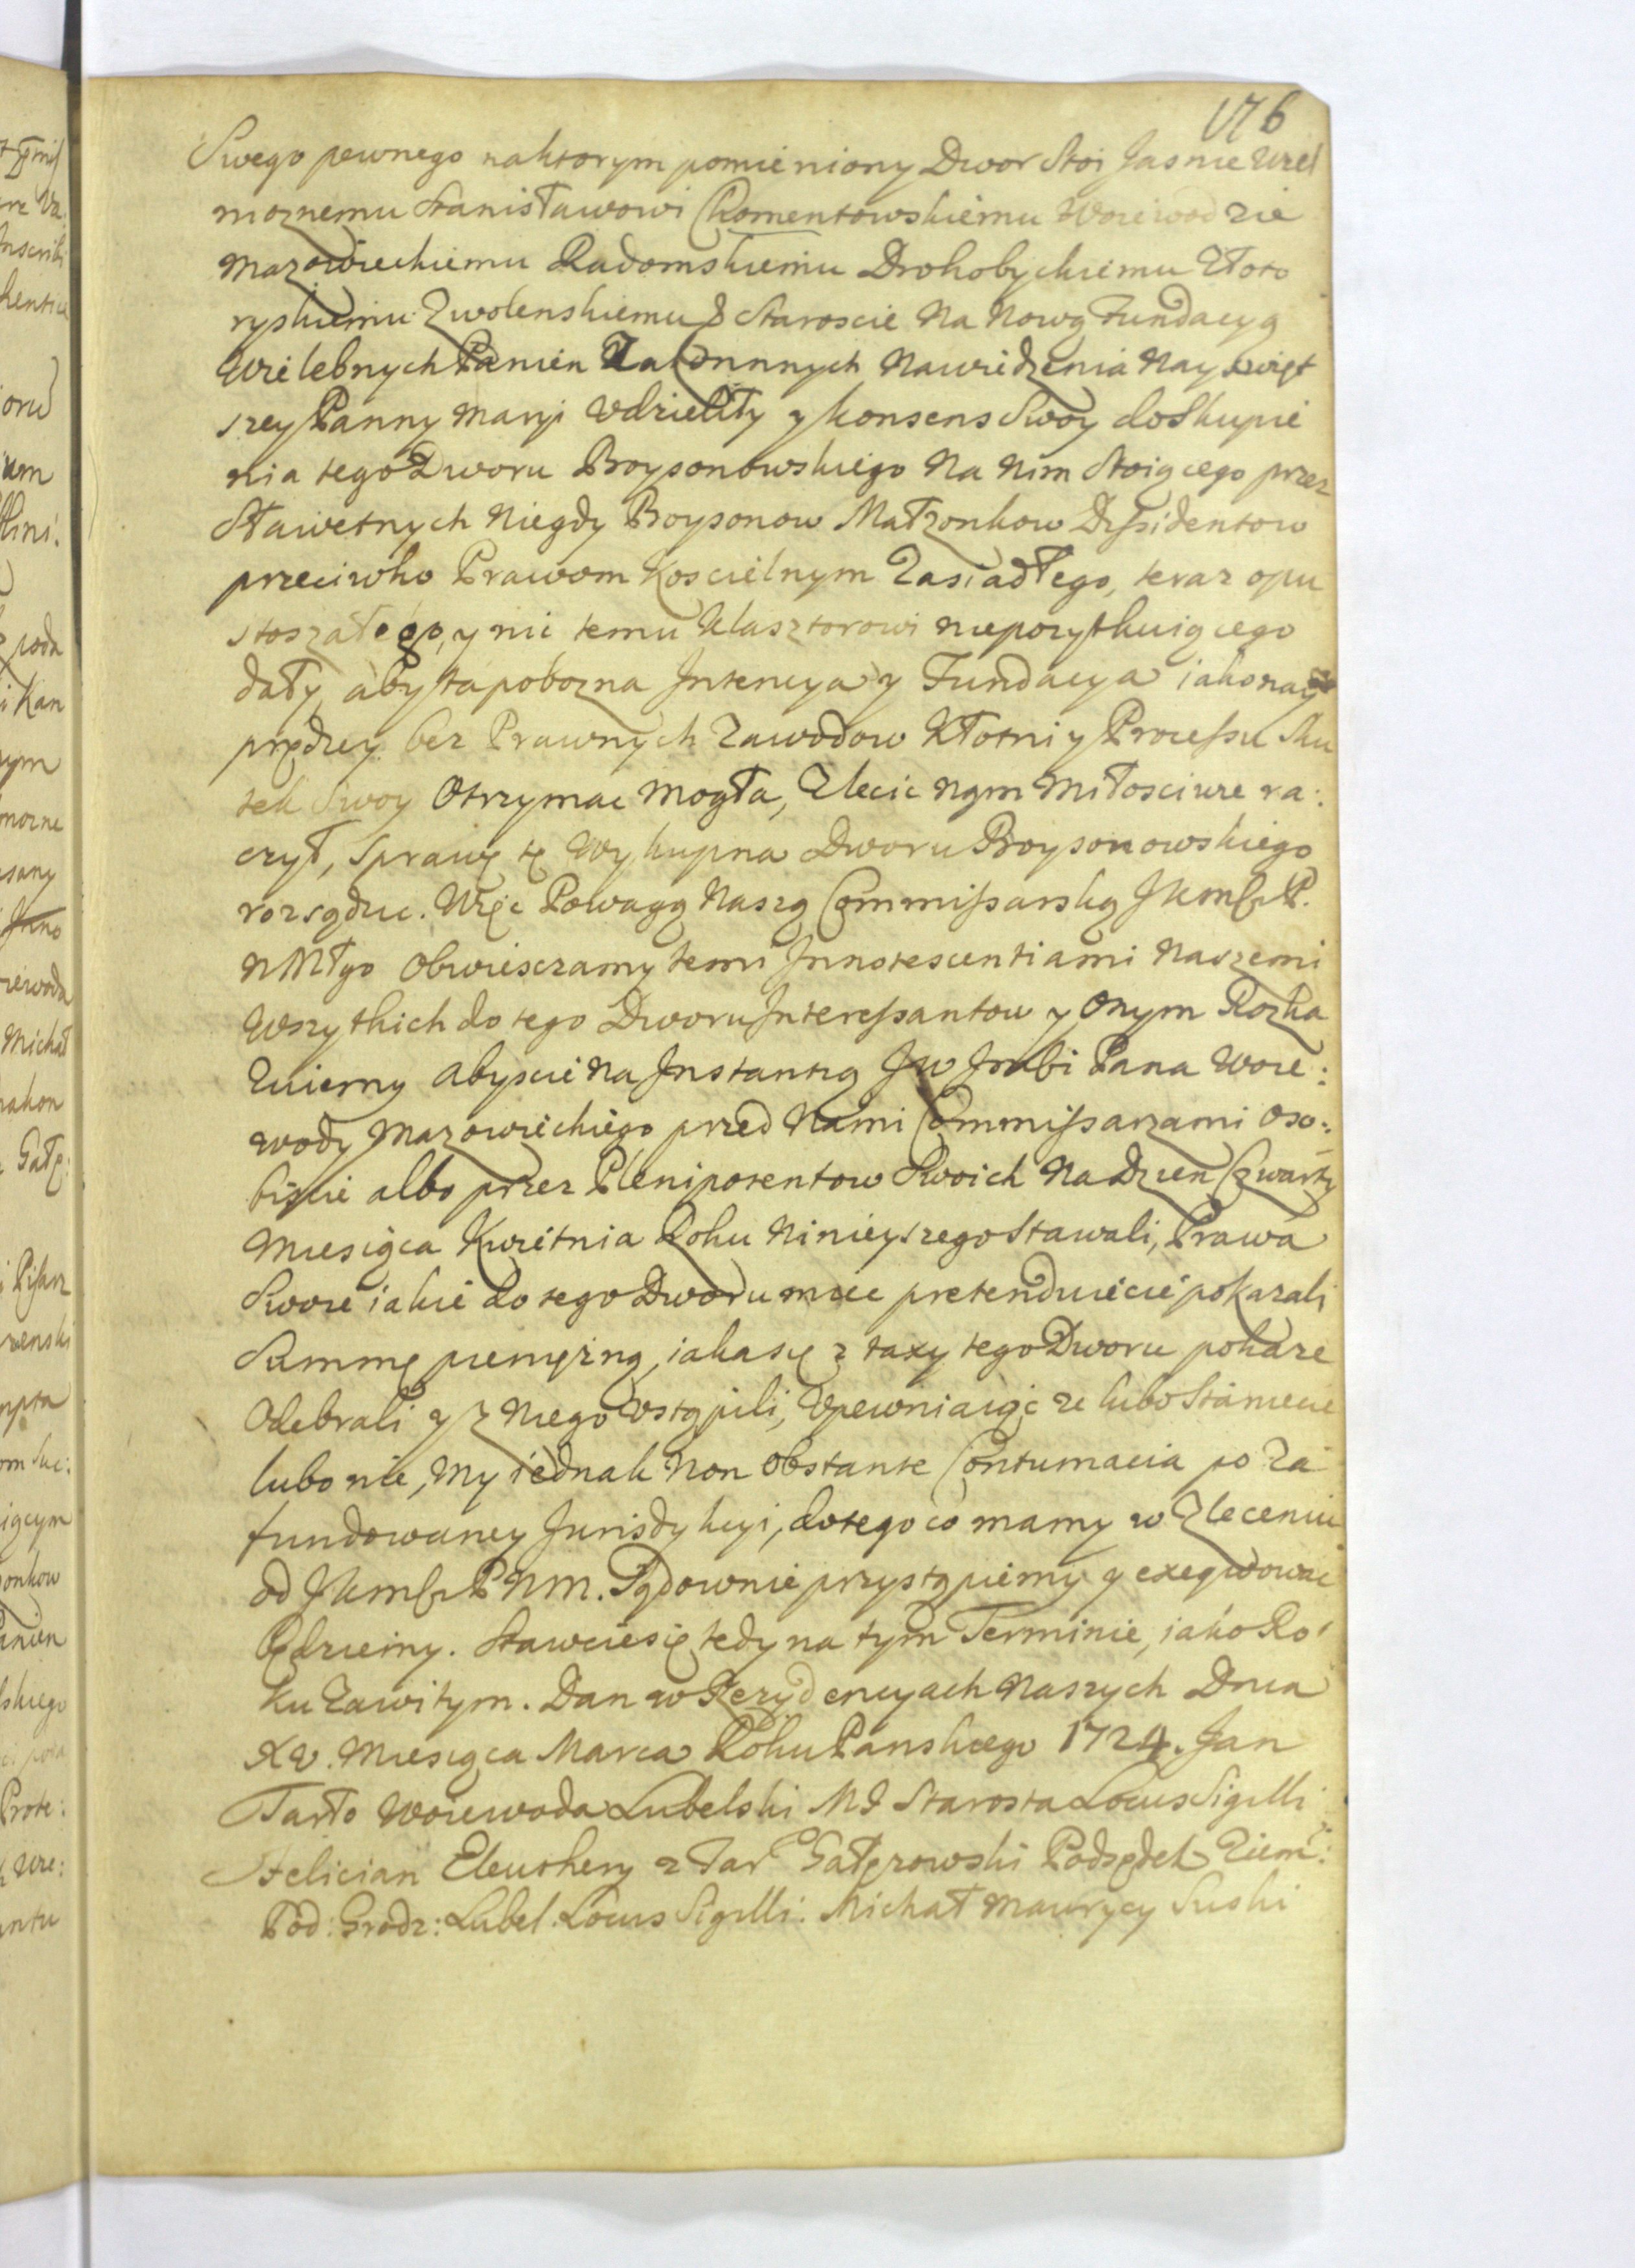 176
Swego pewnego na ktorym pomieniony Dwor Stoi Jasnie Wiel
moznemu Stanisławowi Chomentowskiemu Woiewodzie
Mazowieckiemu Radomskiemu Drohobyckiemu Złoto
ryskiemu Zwolenskiemu & Staroscie Na Nową Fundacyą
Wielebnych Panien Zakonnnych Nawiedzenia Nayswięt
szey Panny Maryi Vdzieliły y konsens Swoy do Skupie
nia tego Dworu Boysonowskiego Na Nim Stoiącego przez
Sławetnych Niegdy Boysonow Małzonkow Dyssidentow
przeciwko Prawom Koscielnym Zasiadłego, teraz opu
stoszałego, y nic temu Klasztorowi niepozytkuiącego
dały, aby ta pobozna Jntencya y Fundacya iako nay
prędzey bez Prawnych Zawodow Kłotni y Processu Sku
tek Swoy Otrzymac Mogła, Zlecic Nąm Miłosciwie ra:
czył, Sprawę tę Wykupna Dworu Boysonowskiego
rozsądzic. Więc Powagą Naszą Commissarską JKmsci P.
NMłgo Obwiesczamy temi Jnnotescentiami Naszemi
Wszytkich do tego Dworu Jnteressantow y Onym Rozka
zuiemy abyscie Na Jnstantią JW Pana Woie:
wody Mazowieckiego przed Nami Commissarzami Oso:
biscie albo przez Plenipotentow Swoich Na Dzien Czwarty
Miesiąca Kwietnia Roku Ninieyszego Stawali, Prawa
Swoie iakie do tego Dworu miec pretenduiecie pokazali
Summę pienięzną, iaka się z taxy tego Dworu pokaze
Odebrali y z Niego Vstąpili, Vpewniaiąc ze lubo Staniecie
lubo nie, My iednak Non Obstante Contumacia po Za
fundowaney Jurisdykcyi, do tego co mamy w Zleceniu
od JKmsci P NM. Sądownie przystąpiemy y exeqwowac
będziemy. Stawcie się tedy na tym Terminie, iako Ro
ku Zawitym. Dan w Rezydencyach Naszych Dnia
XV. Miesiąca Marca Roku Panskiego 1724. Jan
Tarło Woiewoda Lubelski Starosta Locus Sigilli
Felician Eleuthery z Gałęzowski Podsędek Ziem:
Pod: Grodz: Lubel. Locus Sigilli. Michał Maurycy Suski